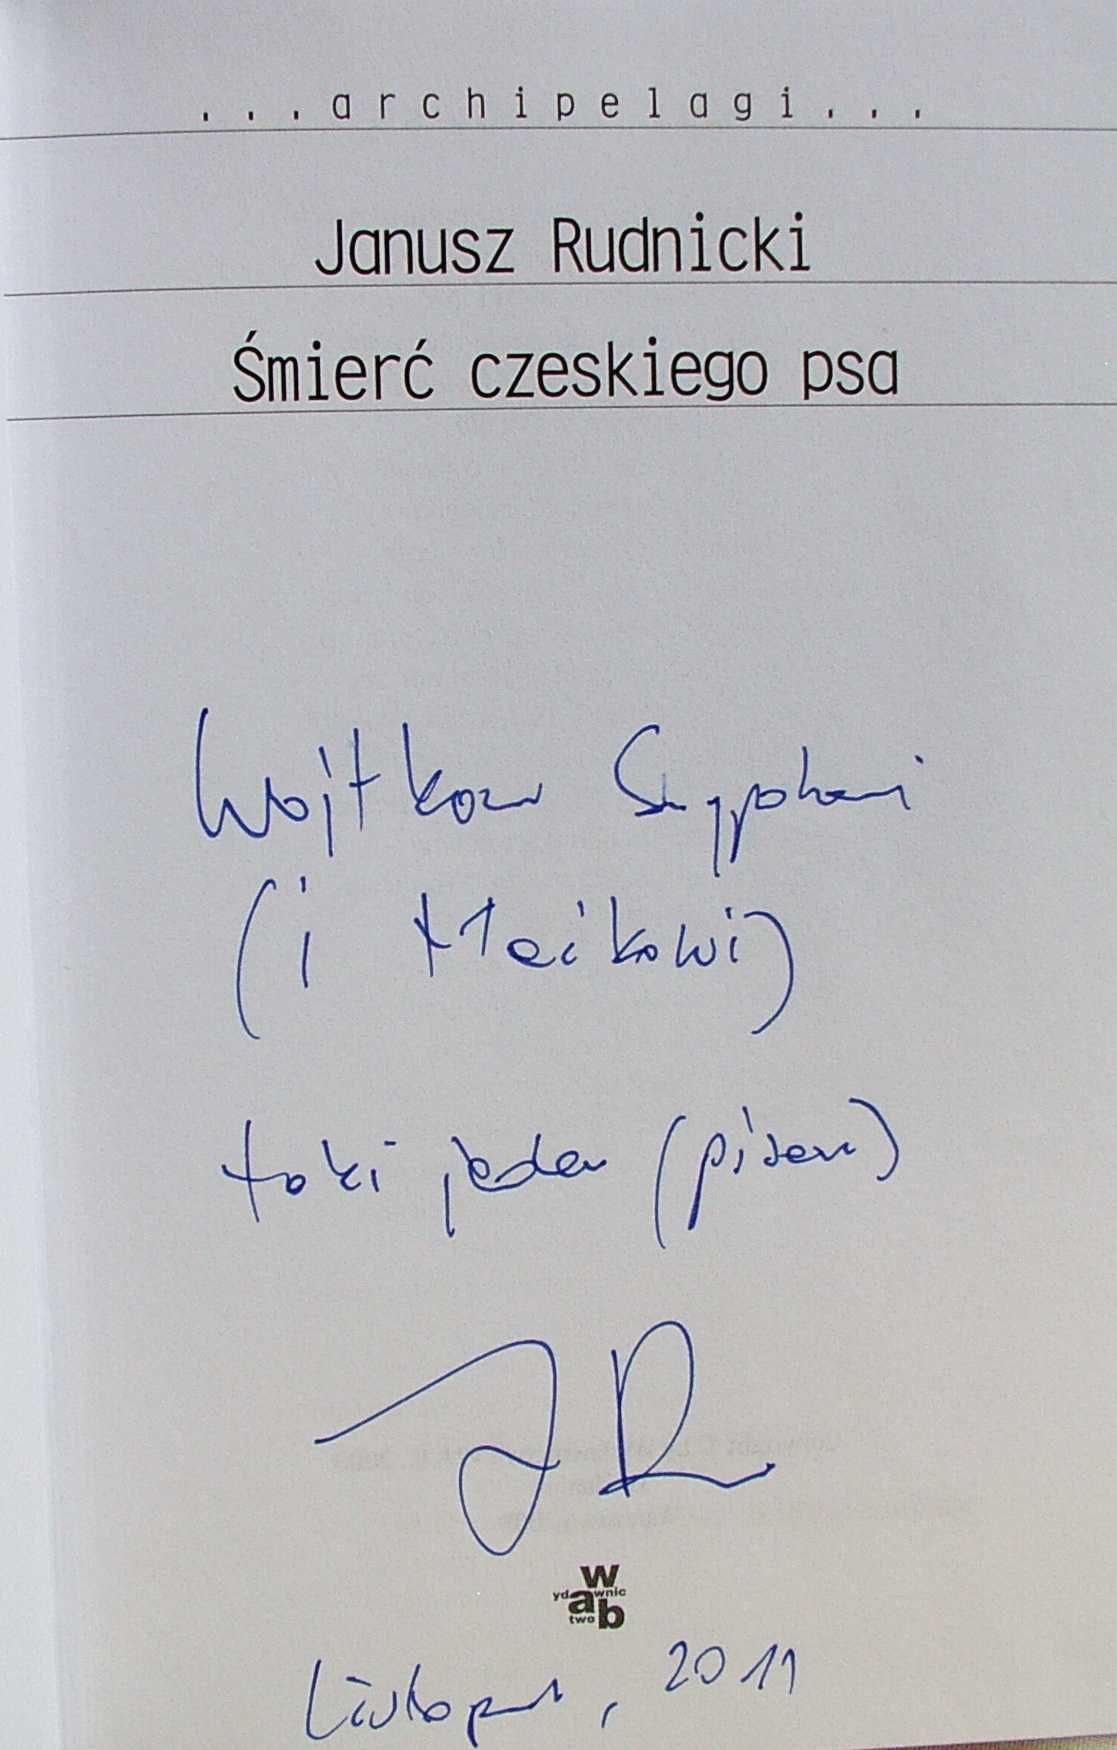 ...archipelagi...
Janusz Rudnicki
Śmierć czeskiego psa
Wojtkowi
(i
taki jeden (pisarz)
JR
wydawnictwo
wab
Listopad, 2011